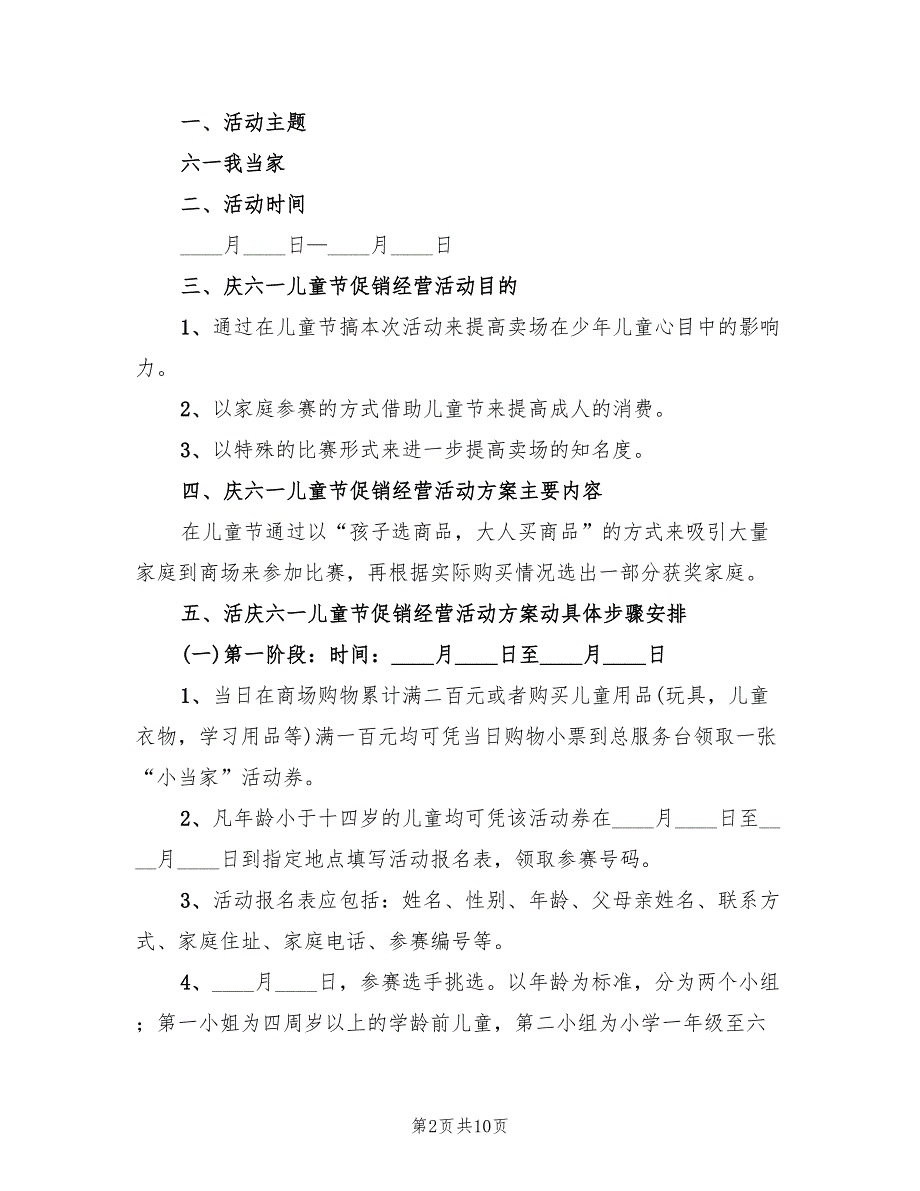 一、活动主题
六一我当家
二、活动时间
____月____日—____月____日
三、庆六一儿童节促销经营活动目的
1、通过在儿童节搞本次活动来提高卖场在少年儿童心目中的影响
力。
2、以家庭参赛的方式借助儿童节来提高成人的消费。
3、以特殊的比赛形式来进一步提高卖场的知名度。
四、庆六一儿童节促销经营活动方案主要内容
在儿童节通过以“孩子选商品，大人买商品”的方式来吸引大量
家庭到商场来参加比赛，再根据实际购买情况选出一部分获奖家庭。
五、活庆六一儿童节促销经营活动方案动具体步骤安排
(一)第一阶段：时间：____月____日至____月____日
1、当日在商场购物累计满二百元或者购买儿童用品(玩具，儿童
衣物，学习用品等)满一百元均可凭当日购物小票到总服务台领取一张
“小当家”活动券。
2、凡年龄小于十四岁的儿童均可凭该活动券在____月____日至__
__月____日到指定地点填写活动报名表，领取参赛号码。
3、活动报名表应包括：姓名、性别、年龄、父母亲姓名、联系方
式、家庭住址、家庭电话、参赛编号等。
4、____月____日，参赛选手挑选。以年龄为标准，分为两个小组
；第一小姐为四周岁以上的学龄前儿童，第二小组为小学一年级至六
第2页共10页